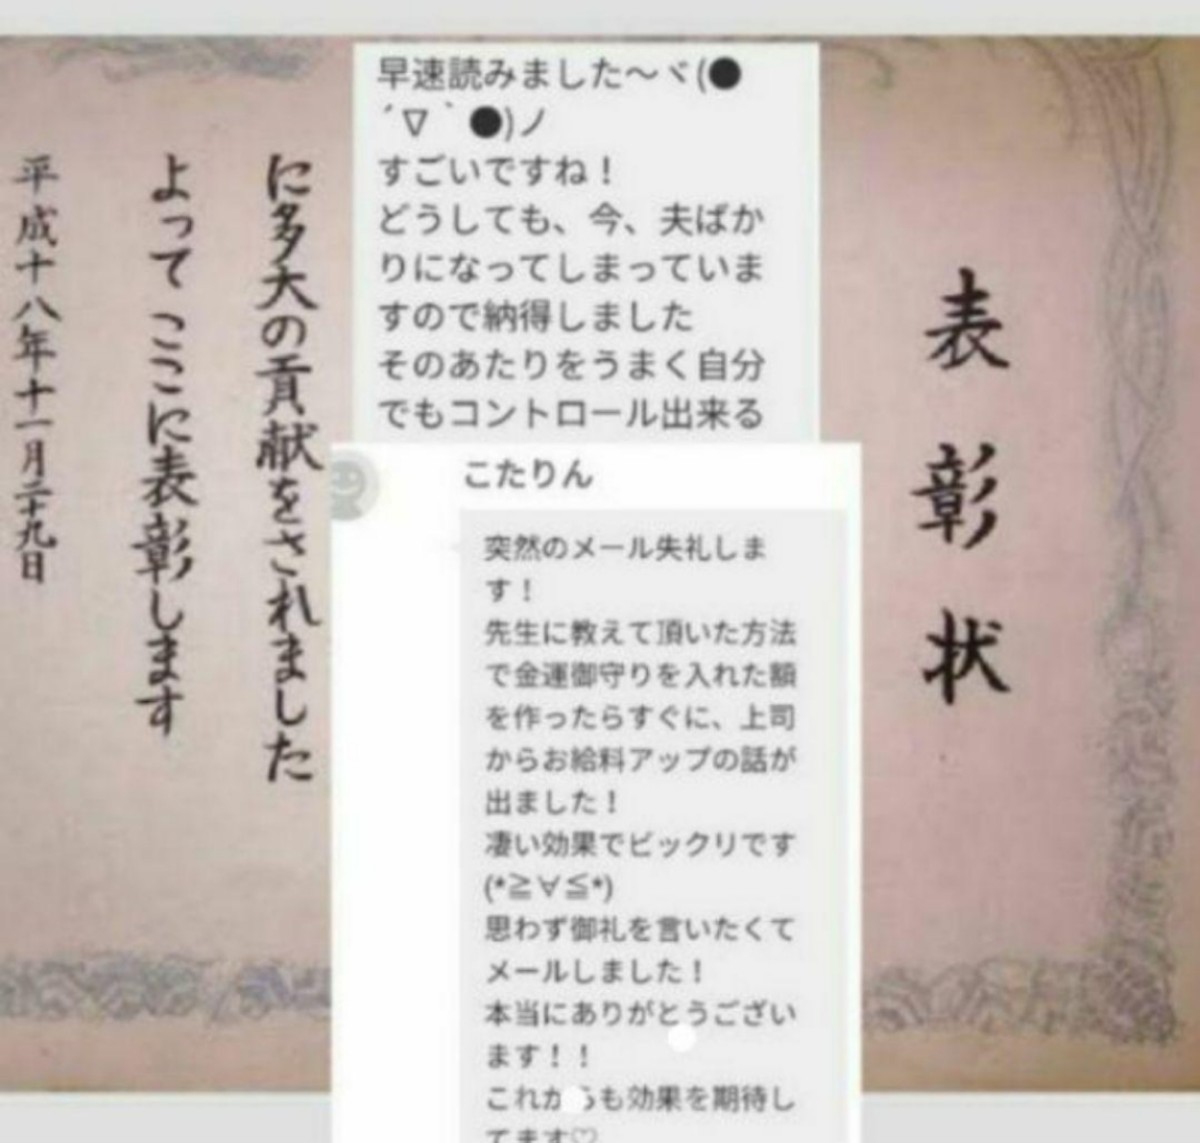 表彰状
に多大の貢献をされました
よって ここに表彰します
平成十八年十一月二十九日
早速読みました〜ヾ(●
´∇｀●)ノ
すごいですね！
どうしても、今、夫ばか
りになってしまっていま
すので納得しました
そのあたりをうまく自分
でもコントロール出来る
こたりん
突然のメール失礼しま
す！
先生に教えて頂いた方法
で金運御守りを入れた額
を作ったらすぐに、上司
からお給料アップの話が
出ました！
凄い効果でビックリです
(*≧∀≦*)
思わず御礼を言いたくて
メールしました！
本当にありがとうござい
ます！！
これからも効果を期待し
てます♡